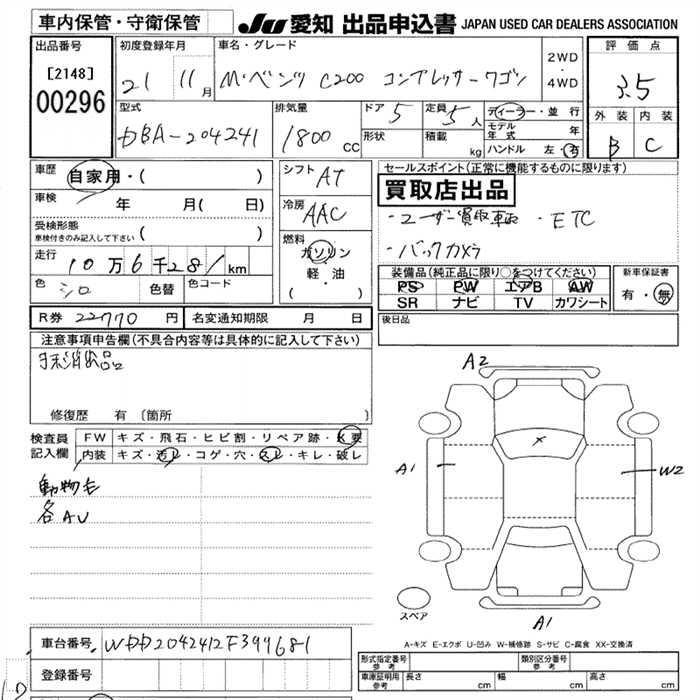 車内保管・守衛保管
JU 愛知 出品申込書 JAPAN USED CAR DEALERS ASSOCIATION
出品番号
[2148]
00296
初度登録年月
21 11月
車名・グレード
M・ベンツ C200 コンプレッサーワゴン
2WD・4WD
評価点
3.5
外装 内装
B C
型式
DBA-204241
排気量
1800 cc
ドア 5
形状
定員 5人
積載 kg
ディーラー・並行
モデル年式 年
ハンドル 左・右
車歴 自家用・( )
車検 年 月( 日)
受検形態
車検付きのみ記入して下さい ( )
走行 10万6千281km
色 シロ 色替 色コード
シフト AT
冷房 AAC
燃料
ガソリン
軽・油
( )
セールスポイント(正常に機能するものに限ります)
買取店出品
・ユーザー買取車両 ・ETC
・バックカメラ
装備品(純正品に限り○をつけてください)
PS PW エアB AW
SR ナビ TV カワシート
新車保証書
有・無
R券 22770円 名変通知期限 月 日
後日品
注意事項申告欄(不具合内容等は具体的に記入して下さい)
未消出品
修復歴 有 (箇所 )
検査員記入欄
FW キズ・飛石・ヒビ割・リペア跡・X要
内装 キズ・汚レ・コゲ・穴・スレ・キレ・破レ
動物毛
各AU
A2
A1
W2
X
A1
スペア
A-キズ E-エクボ U-凹み W-補修跡 S-サビ C-腐食 XX-交換済
車台番号 WDD2042412F399681
登録番号
形式指定番号 参考
類別区分番号 参考
車庫証明用 参考 長さ cm 幅 cm 高さ cm